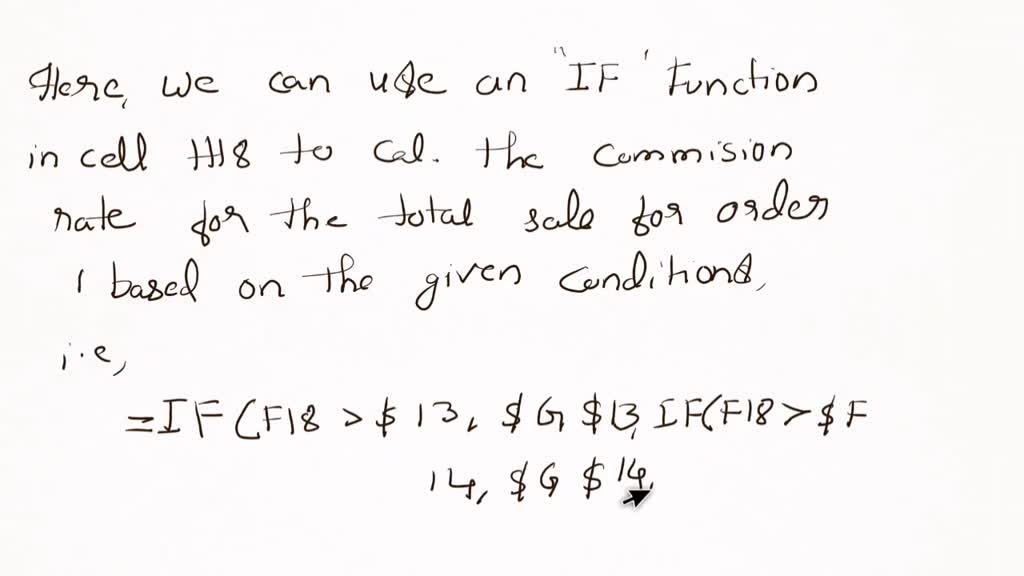 Here, we can use an "IF' Function
in cell H18 to Cal. the commision
rate for the total sale for order
1 based on the given conditions,
i.e,
=IF(F18 > $ 13, $ G $13, IF(F18 > $ F
14, $ G $ 14,